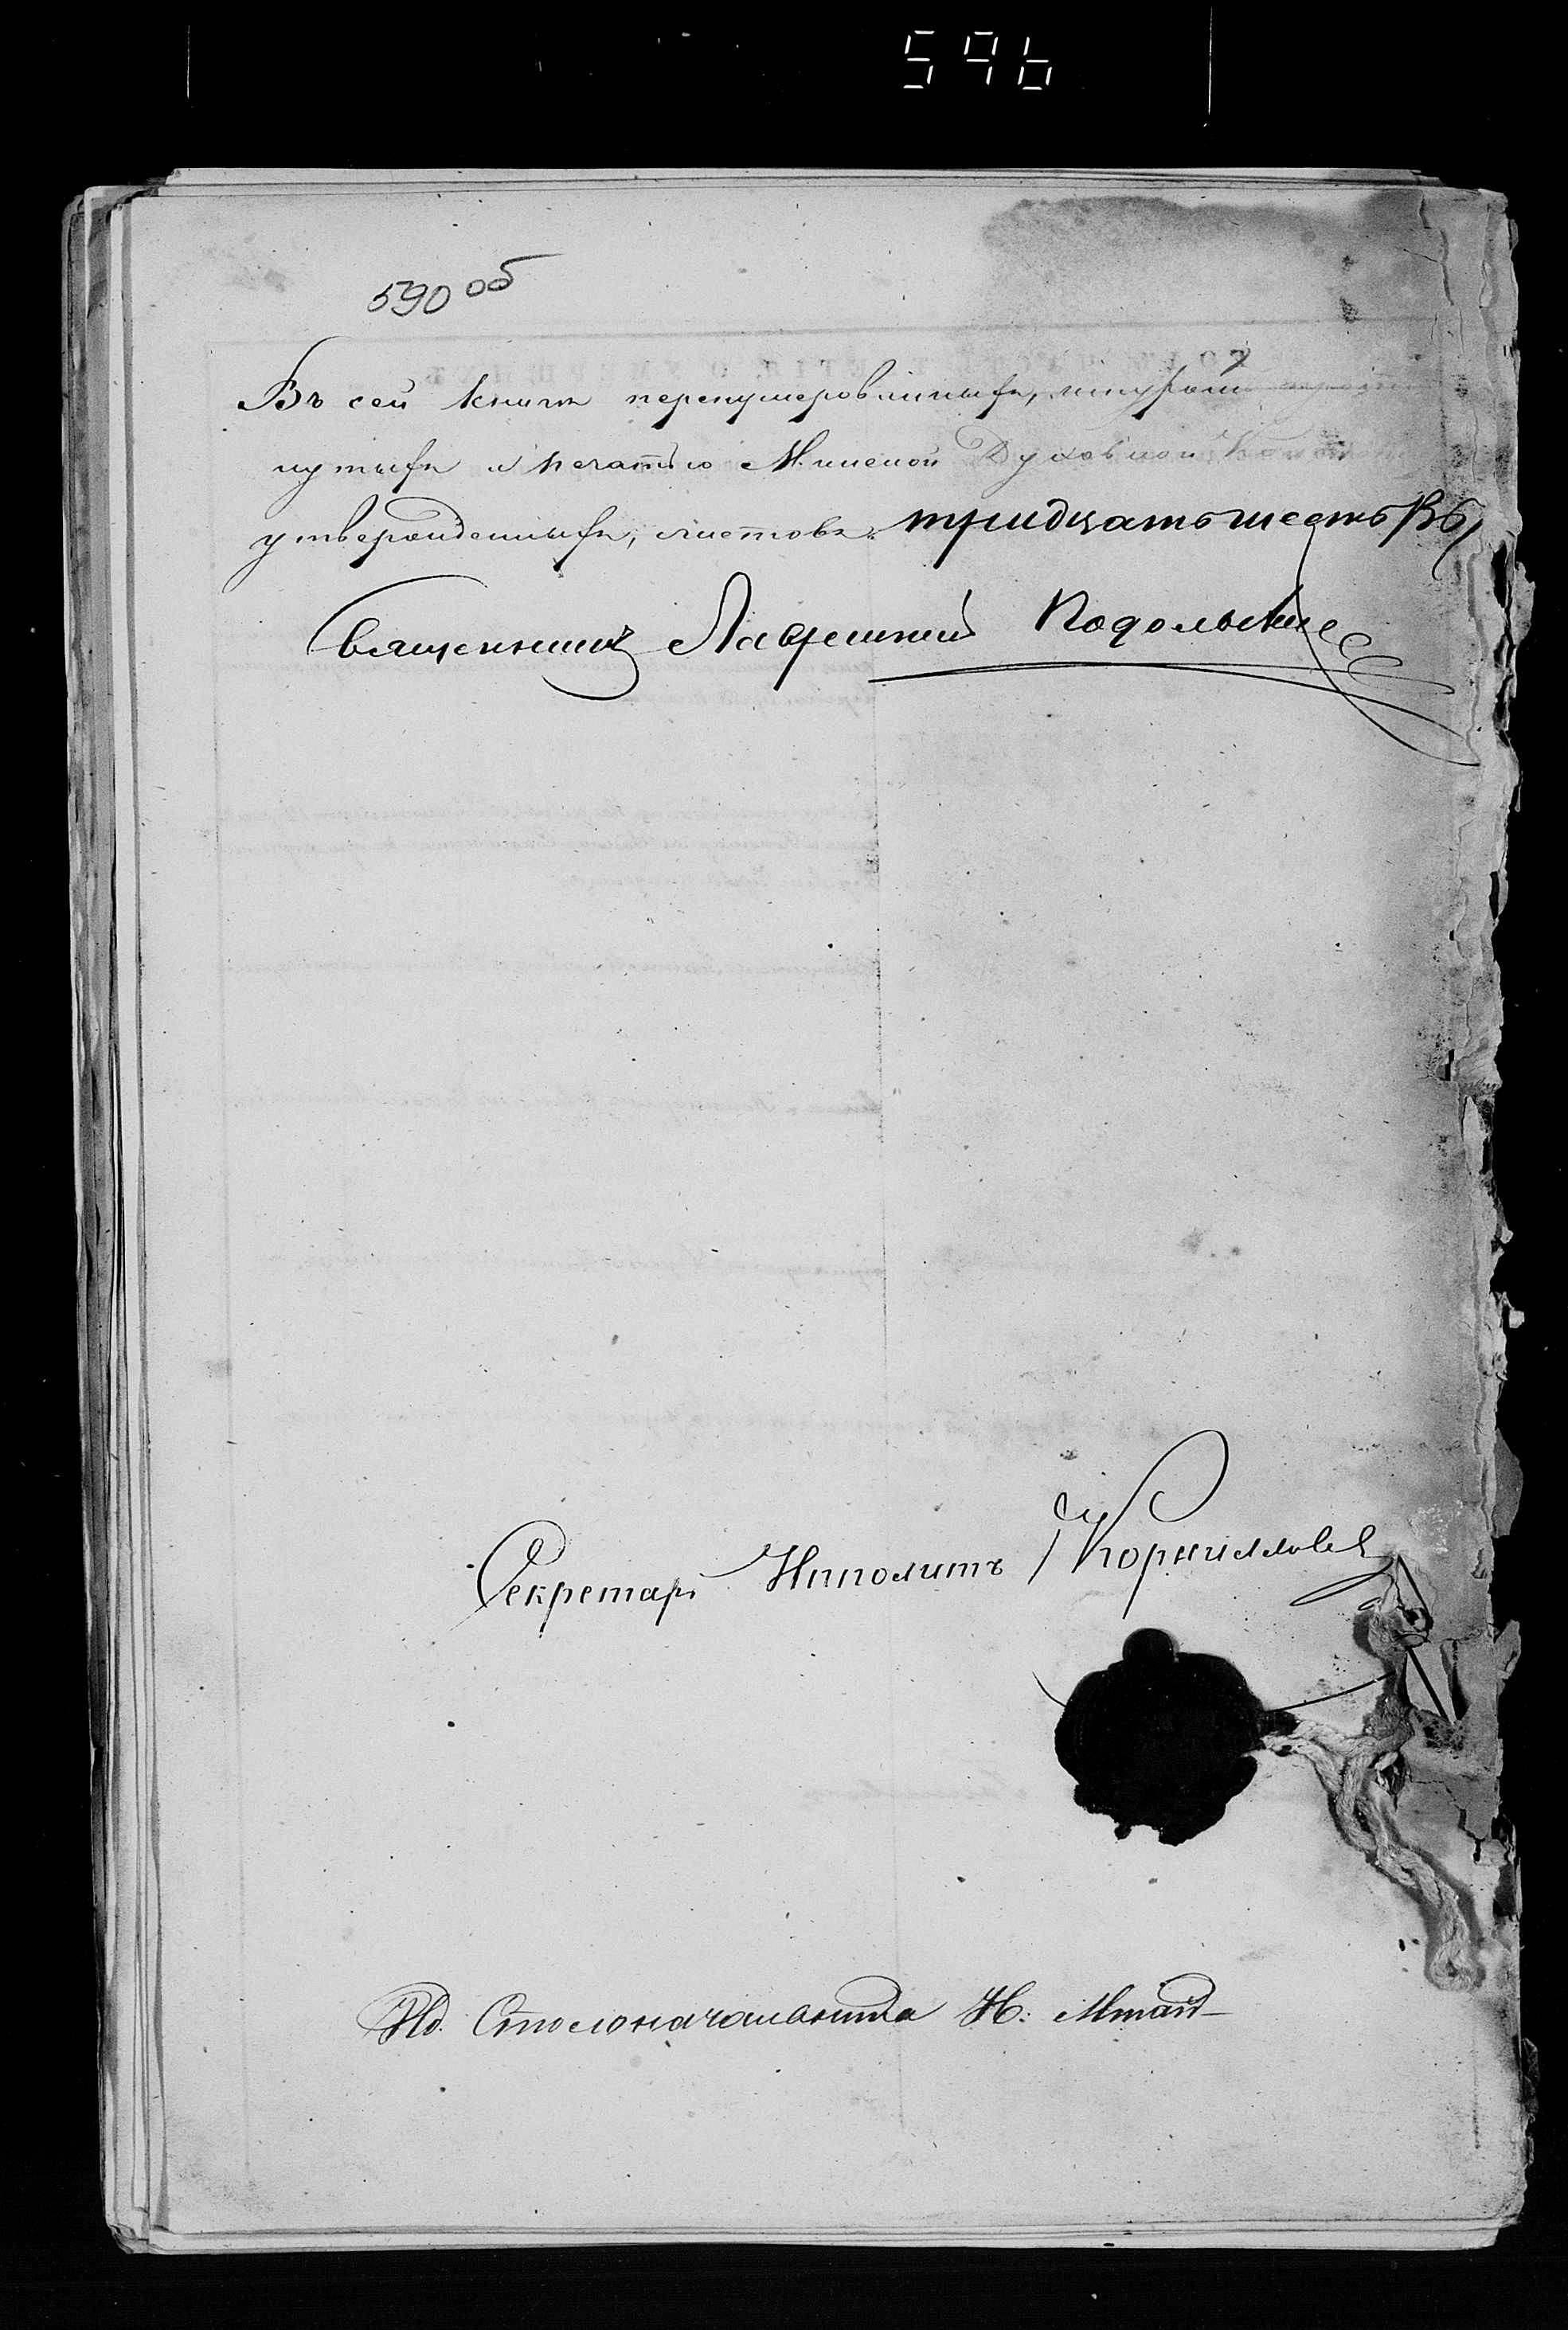 596
590 об
Въ сей книгѣ перенумерованныхъ, шнуромъ
нутыхъ и печатью Минской Духовной
утвержденныхъ, листовъ: тридцать шесть 36,
Священникъ Лаврентий Подольский
Секретарь Ипполитъ Корниловъ
Ид. Столоначальника Н.